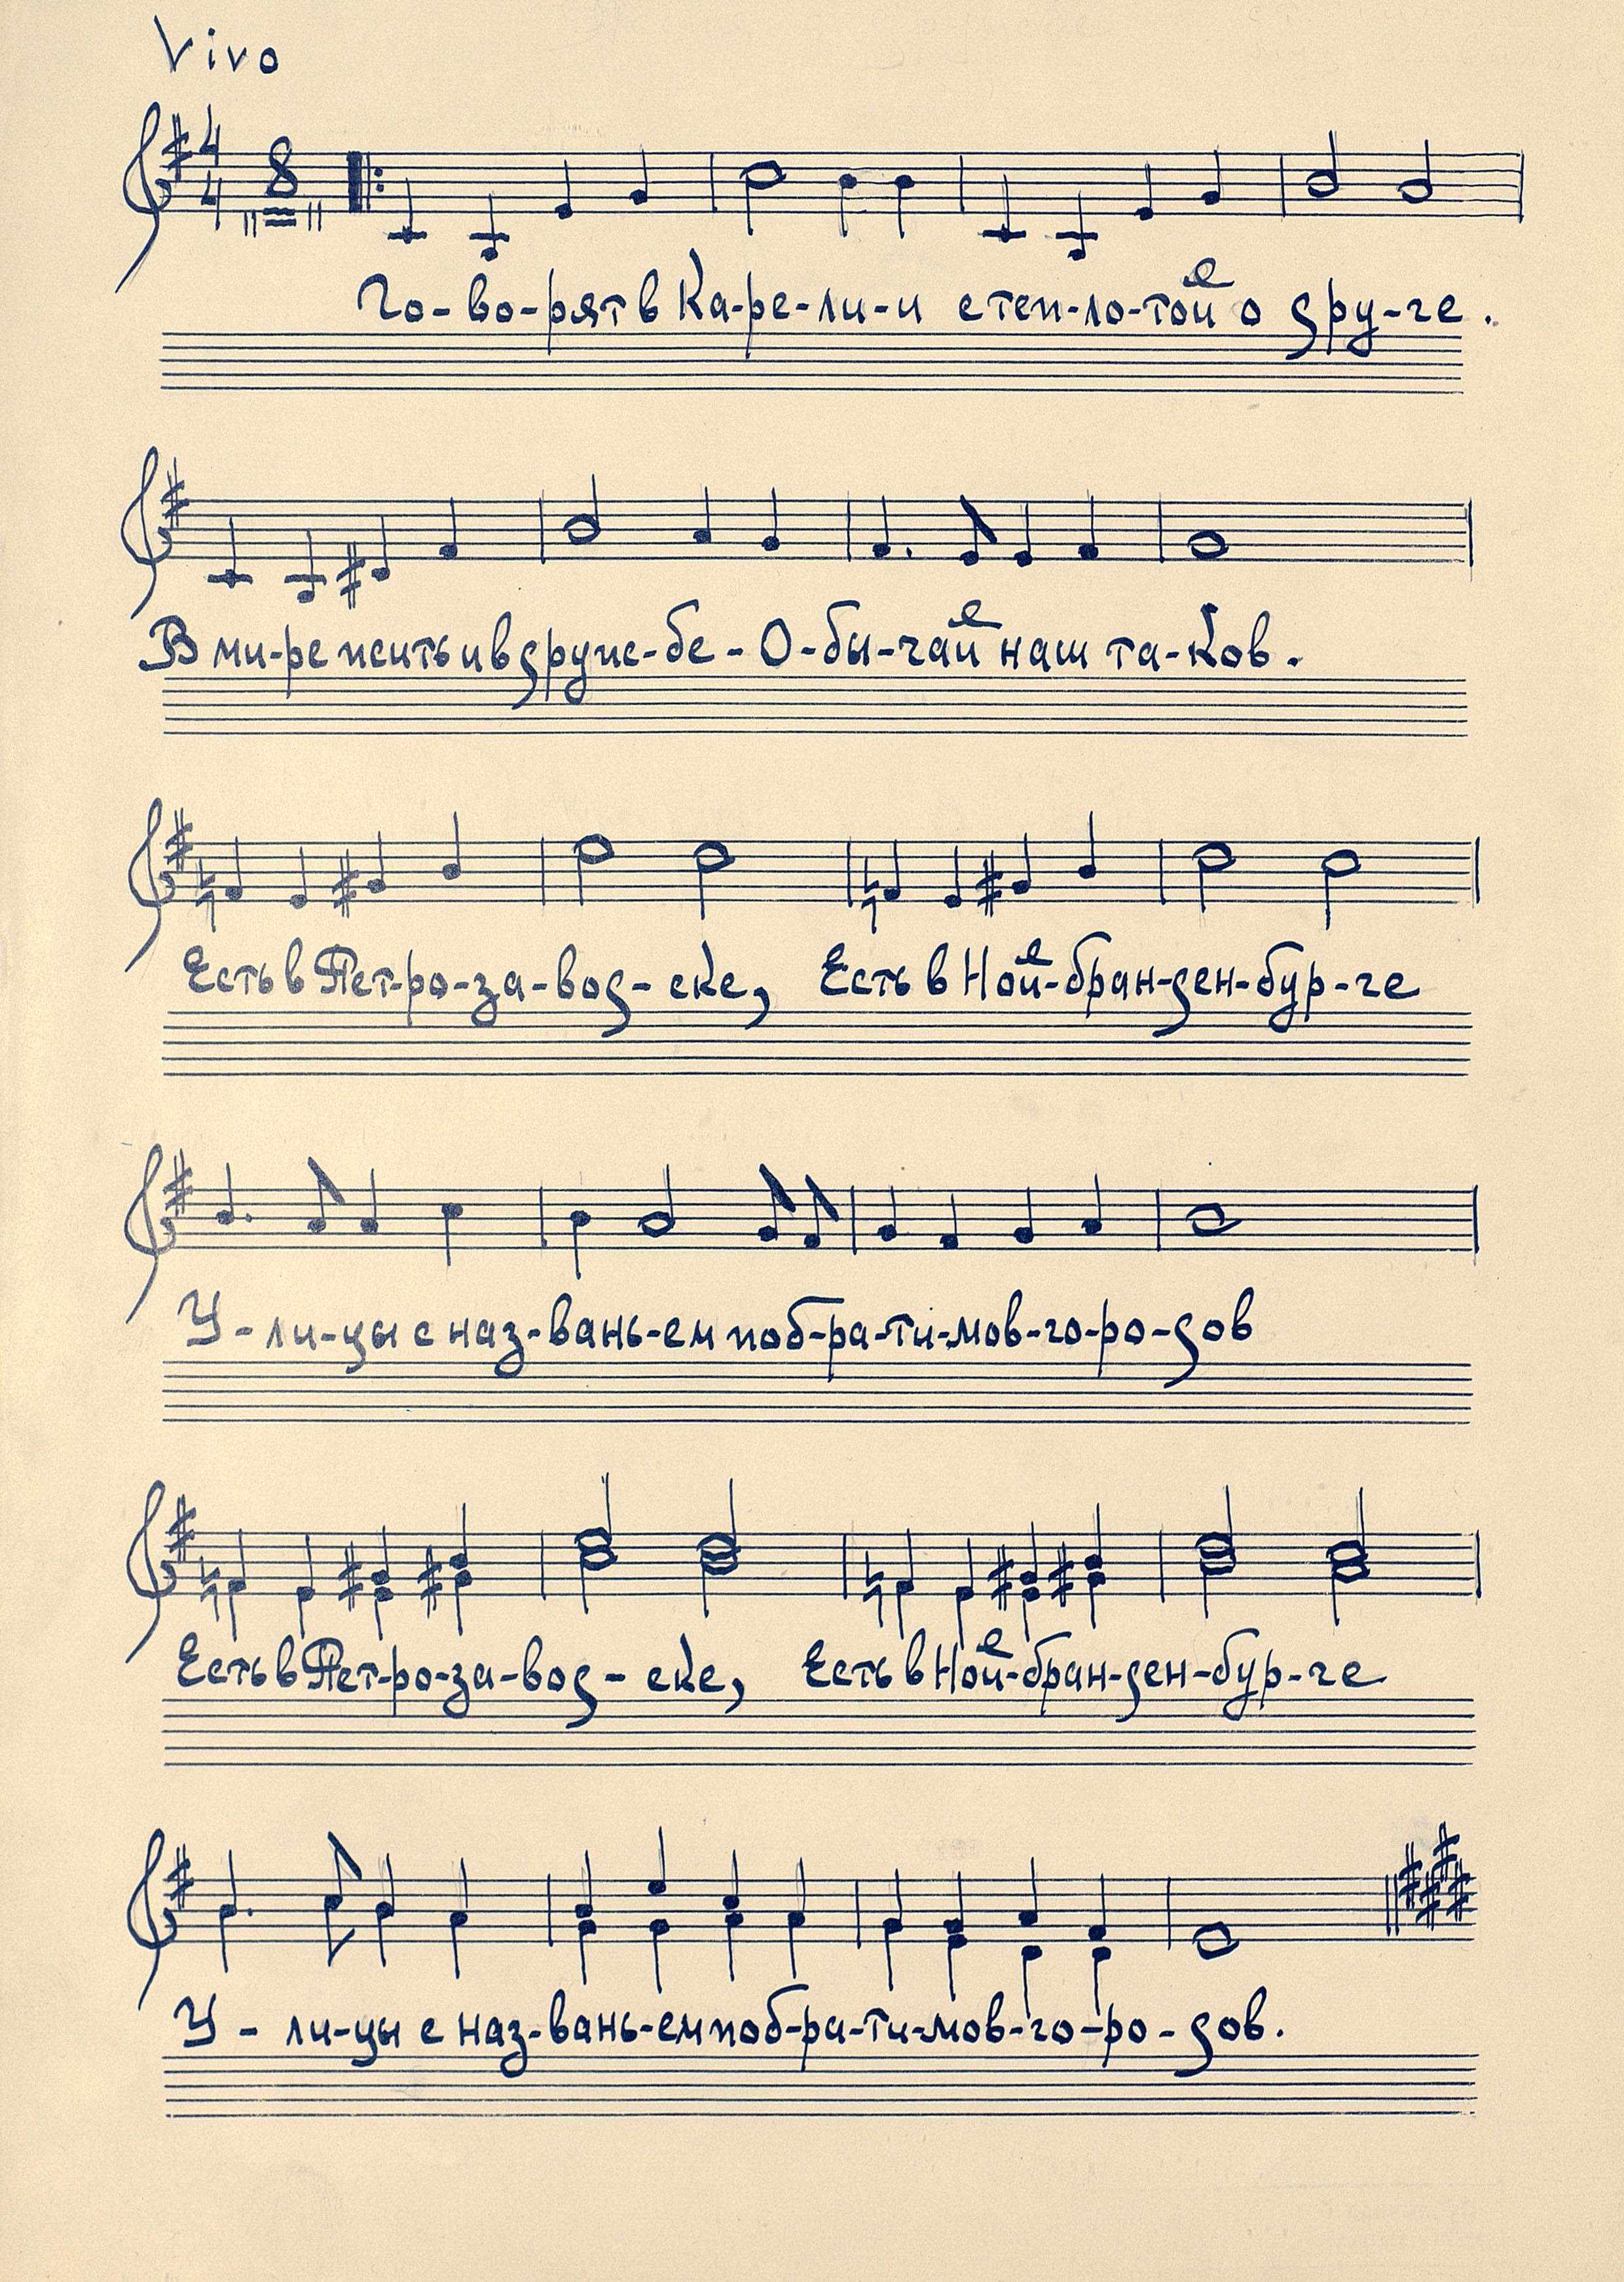 Vivo
4 4 "8"
Го-во-рят в Ка-ре-ли-и с теп-ло-той о дру-ге.
В ми-ре жить и в друж-бе - О-бы-чай наш та-ков.
Есть в Пет-ро-за-вод-ске, Есть в Ной-бран-ден-бур-ге
У-ли-цы с наз-вань-ем поб-ра-ти-мов-го-ро-дов
Есть в Пет-ро-за-вод-ске, Есть в Ной-бран-ден-бур-ге
У-ли-цы с наз-вань-ем поб-ра-ти-мов-го-ро-дов.